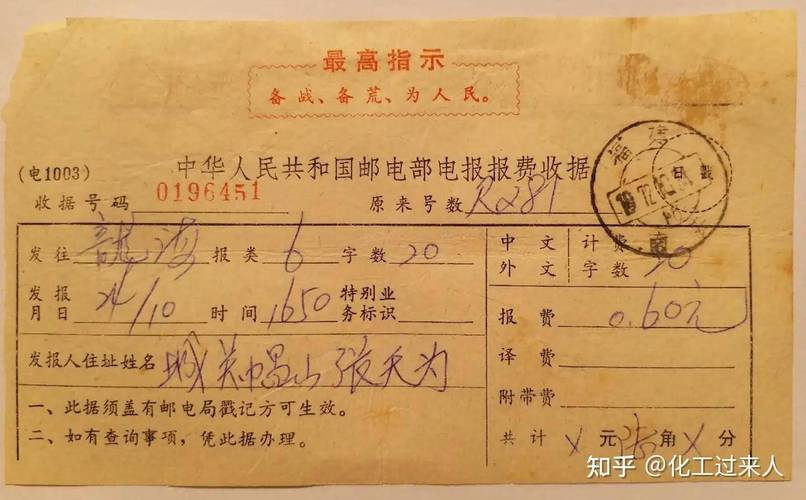 最高指示
备战、备荒、为人民。
(电1003)
中华人民共和国邮电部电报报费收据
收据号码 0196451 原来号数 R281
发往 龍海 报类 6 字数 20
中文 计费
外文 字数 20
发报
月日 24/10 时间 1650 特别业
务标识
报费 0.60元
发报人住址姓名 城关 张天为
译费
附带费
一、此据须盖有邮电局戳记方可生效。
二、如有查询事项,凭此据办理。
共计 X 元 角 X 分
福建
南
知乎 @化工过来人